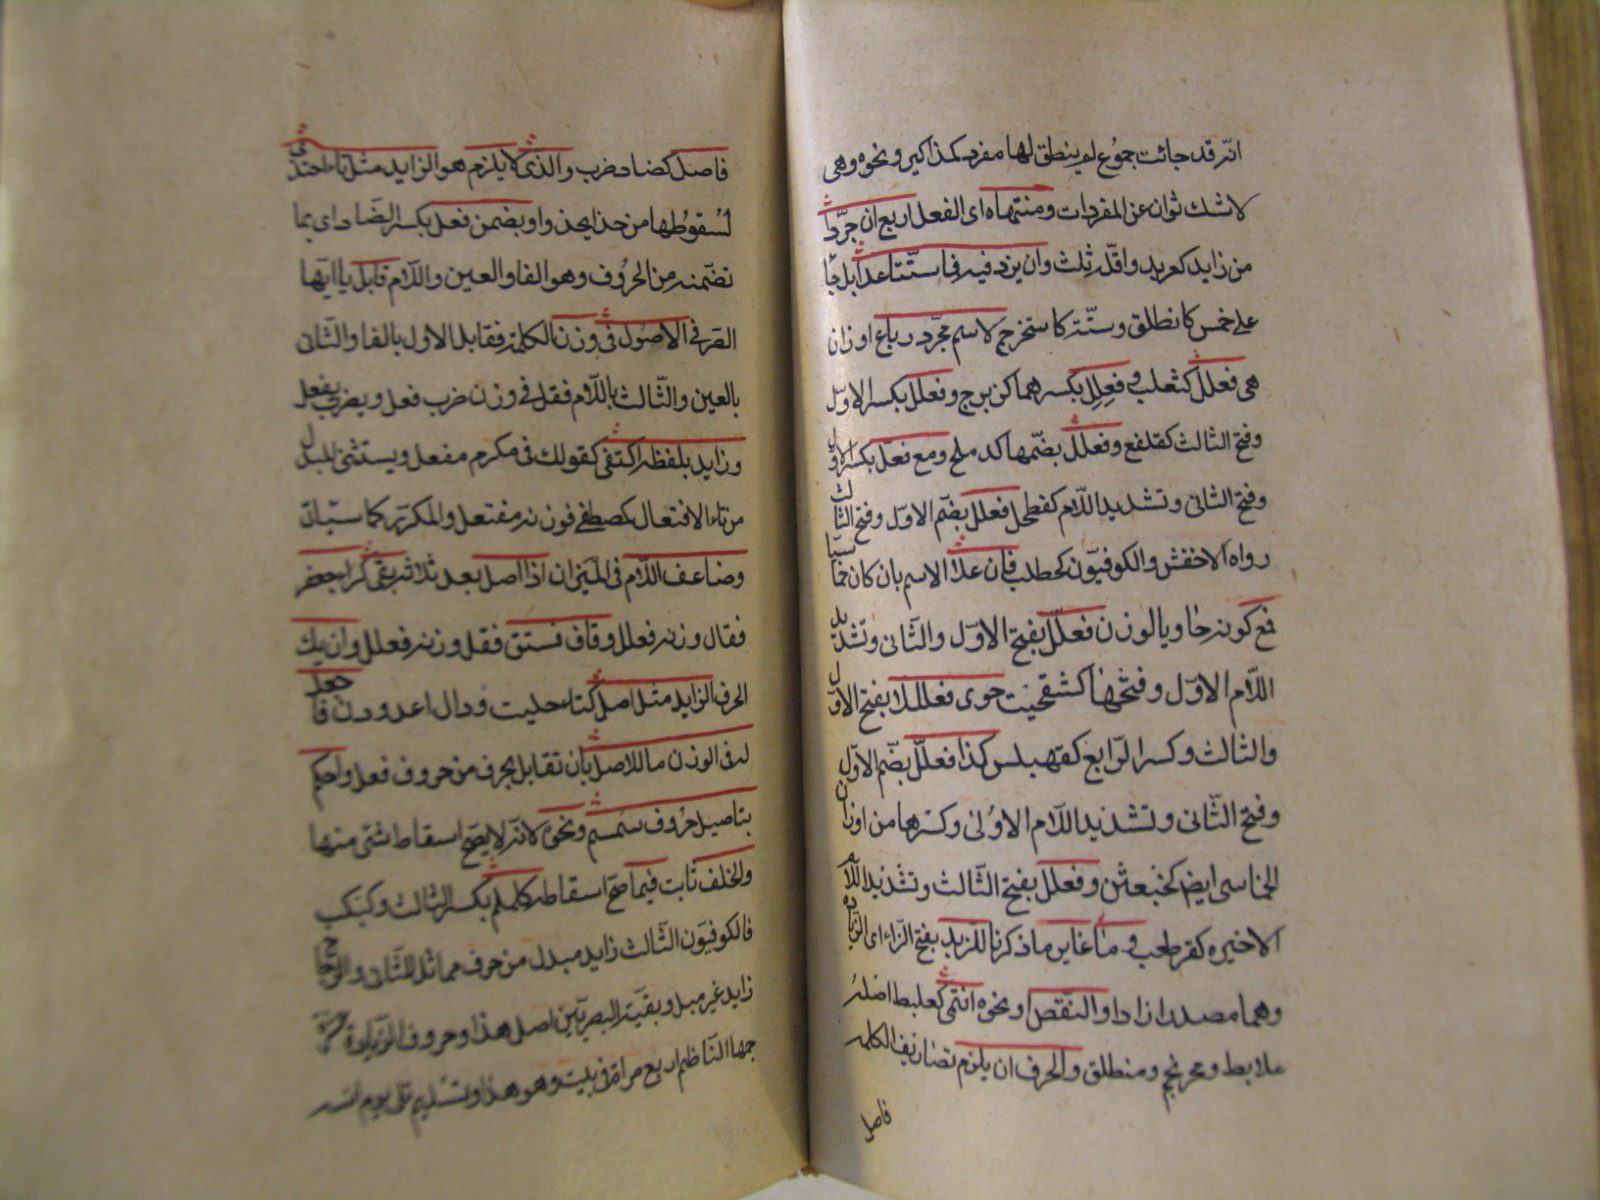 انه قد جائت جموع لم ينطق لها مفرد كمذاكير ونحوه وهى
لاشك ثوان عن المفردات ومنتهاه اى الفعل اربع ان جردا
من زايد كعربد واقله ثلث وان يزد فيه فما ستتا عدا بل جا
على خمس كانطلق وستة كاستخرج لاسم مجرد رباع اوزان
هى فعلل كثعلب و فعلل بكسرهما كزبرج وفعلل بكسر الاول
وفتح الثالث كقلفع وفعلل بضمها كدملج ومع فعل بكسر الاول
وفتح الثانى وتشديد اللام كفطحل فعلل بضم الاول وفتح الثالث
رواه الاخفش والكوفيون كحطلب فان علا الاسم بان كان خماسيا
فمع كونه حاويا لوزن فعلل بفتح الاول والثانى وتشديد
اللام الاول وفتحها كشقحيت حوى فعللا بفتح الاول
والثالث وكسر الرابع كقهبلس كذا فعلل بضم الاول
وفتح الثانى وتشديد اللام الاولى وكسرها من اوزان
الخماسى ايض كخبعثن وفعلل بفتح الثالث وتشديد اللام
الاخيره كقرطعب و ما غاير ما ذكرنا للزيد بفتح الزاء اى الزياده
وهما مصدرا زاد او النقص او نحوه انتمى كعلبط اصله
علابط ومحرنجم ومنطلق والحرف ان يلزم تصاريف الكلمه
فاصل
فاصل كضاد ضرب والذى لا يلزم هو الزايد مثل تاء احتذى
لسقوطها من حذا يحذو او بضمن فعل بكسر الضاد اى بما
تضمنه من الحروف وهو الفا والعين واللام قابل يا ايها
الصرفى الاصول فى وزن الكلمة فقابل الاول بالفا والثانى
بالعين والثالث باللام فقل فى وزن ضرب فعل ويضرب يفعل
وزايد بلفظه اكتفى كقولك فى مكرم مفعل ويستثنى المبدل
من تاء الافتعال كمصطفى فوزنه مفتعل والمكرر كما سياتى
وضاعف اللام فى الميزان اذا اصل بعد ثلاثة بقى كراء جعفر
فقال وزنه فعلل وقاف فستق فقل وزنه فعلل وان يك
الحرف الزايد مثل اصل كتاء حليت ودال اغدودن فاجعل
له فى الوزن ما للاصل بان تقابل بحرف من حروف فعل واحكم
بتاصيل حروف سمسم ونحوه لانه لا يصح اسقاط شئ منها
والخلف ثابت فيما صح اسقاطه كلملم بكسر الثالث وكبكب
فالكوفيون الثالث زايد مبدل من حرف مماثل للثانى والزجاج
زايد غير مبدل وبقية البصريين اصل هذا وحروف الزيادة عشرة
جمها الناظم اربع مراة فى بيت وهو هذا وتسليم تلى يوم انسه